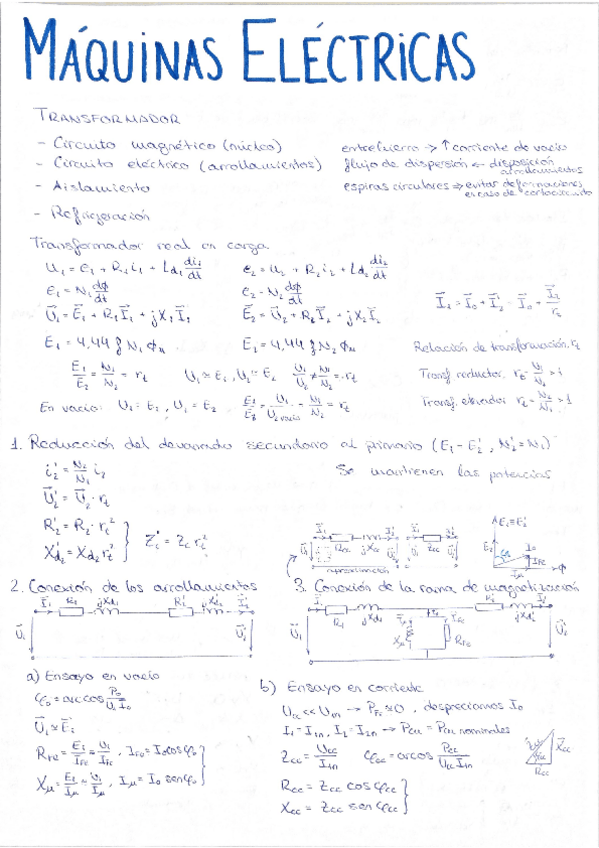 MÁQUINAS ELÉCTRICAS
TRANSFORMADOR
- Circuito magnético (núcleo)
- Circuito eléctrico (arrollamientos)
- Aislamiento
- Refrigeración
entrehierro → ↑ corriente de vacío
flujo de dispersión ← disposición arrollamientos
espiras circulares ⇒ evitar deformaciones
en caso de cortocircuito
Transformador real en carga
U₁ = E₁ + R₁i₁ + Ld₁ di₁/dt
e₂ = U₂ + R₂i₂ + Ld₂ di₂/dt
E₁ = N₁ dφ/dt
e₂ = N₂ dφ/dt
U₁ = E₁ + R₁I₁ + jX₁I₁
E₂ = U₂ + R₂I₂ + jX₂I₂
I₁ = I₀ + I₂' = I₀ + I₂/rₜ
E₁ = 4,44 f N₁ φₘ
E₂ = 4,44 f N₂ φₘ
Relación de transformación, rₜ
E₁/E₂ = N₁/N₂ = rₜ
U₁ ≃ E₁, U₂ ≃ E₂
U₁/U₂ ≠ N₁/N₂ = rₜ
Transf reductor, rₜ = N₁/N₂ > 1
En vacío: U₁ = E₁, U₂ = E₂
E₁/E₂ = U₁/U₂ vacío = N₁/N₂ = rₜ
Transf. elevador rₜ = N₂/N₁ > 1
1. Reducción del devanado secundario al primario (E₁ = E₂', N₂' = N₁)
i₂' = N₂/N₁ i₂
Se mantienen las potencias
U₂' = U₂ · rₜ
R₂' = R₂ · rₜ²
X'd₂ = Xd₂ rₜ²
Zc' = Zc rₜ²
Rcc jXcc
Zcc
aproximación
E₁ = E₂'
2. Conexión de los arrollamientos
3. Conexión de la rama de magnetización
a) Ensayo en vacío
φ₀ = arccos P₀/U₁I₀
U₁ ≃ E₁
RFe = E₁/IFe ≃ U₁/IFe, IFe = I₀ cos φ₀
Xμ = E₁/Iμ ≃ U₁/Iμ, Iμ = I₀ sen φ₀
b) Ensayo en corriente
Ucc << U₁n → PFe ≃ 0, despreciamos I₀
I₁ = I₁n, I₂ = I₂n → Pcu = Pcu nominales
Zcc = Ucc/I₁n
φcc = arcos Pcc/Ucc I₁n
Rcc = Zcc cos φcc
Xcc = Zcc sen φcc
Xcc
Rcc